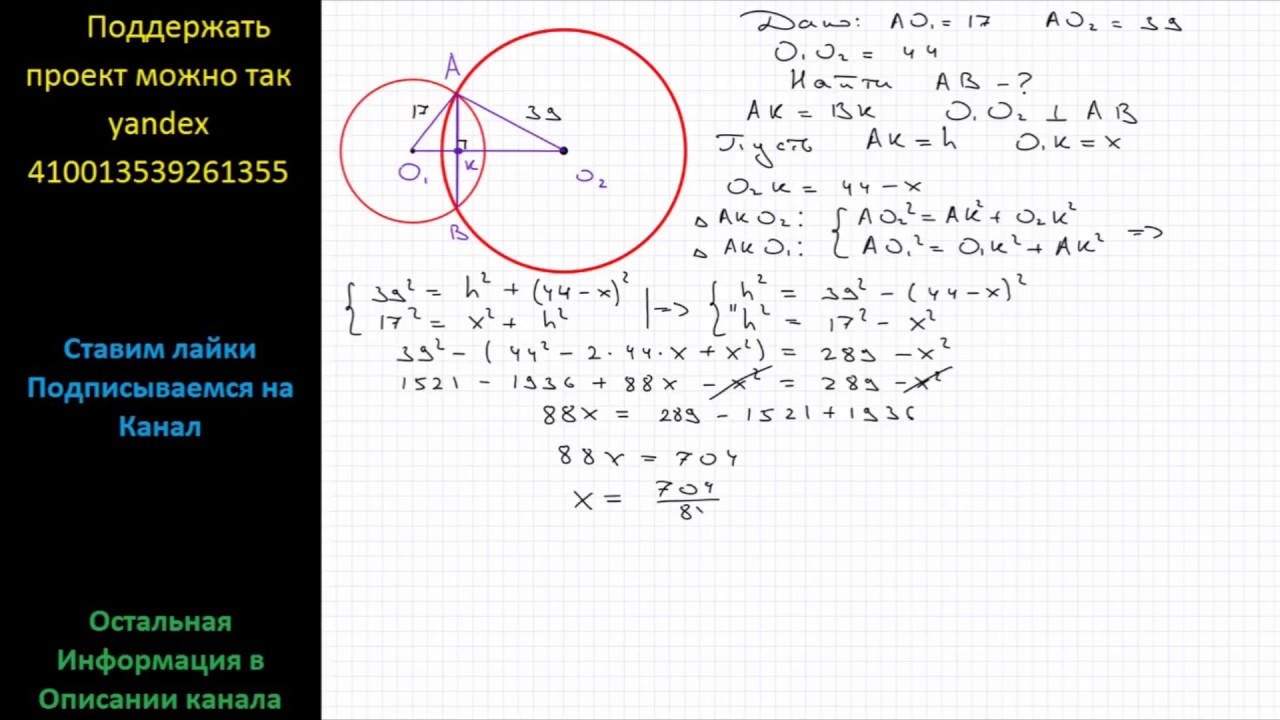 Поддержать
проект можно так
yandex
410013539261355
Ставим лайки
Подписываемся на
Канал
Остальная
Информация в
Описании канала
A
17
39
O₁
K
O₂
B
Дано: AO₁ = 17 AO₂ = 39
O₁O₂ = 44
Найти AB - ?
AK = BK O₁O₂ ⊥ AB
Пусть AK = h O₁K = x
O₂K = 44 - x
△ AKO₂: { AO₂² = AK² + O₂K²
△ AKO₁: { AO₁² = O₁K² + AK² =>
{ 39² = h² + (44 - x)² | => { h² = 39² - (44 - x)²
{ 17² = x² + h² | => { "h² = 17² - x²
39² - (44² - 2·44·x + x²) = 289 - x²
1521 - 1936 + 88x - x² = 289 - x²
88x = 289 - 1521 + 1936
88x = 704
x = 704/8